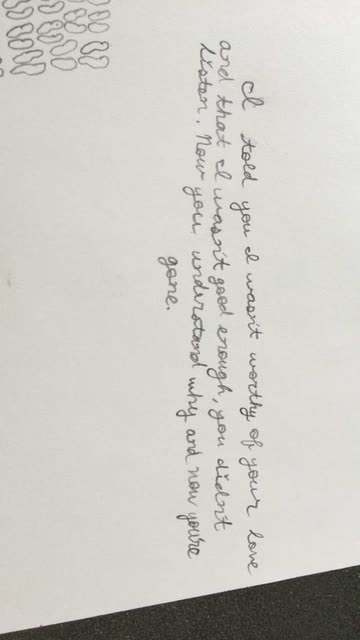 I told you I wasn't worthy of your love
and that I wasn't good enough, you didn't
listen. Now you understand why and now you're
gone.